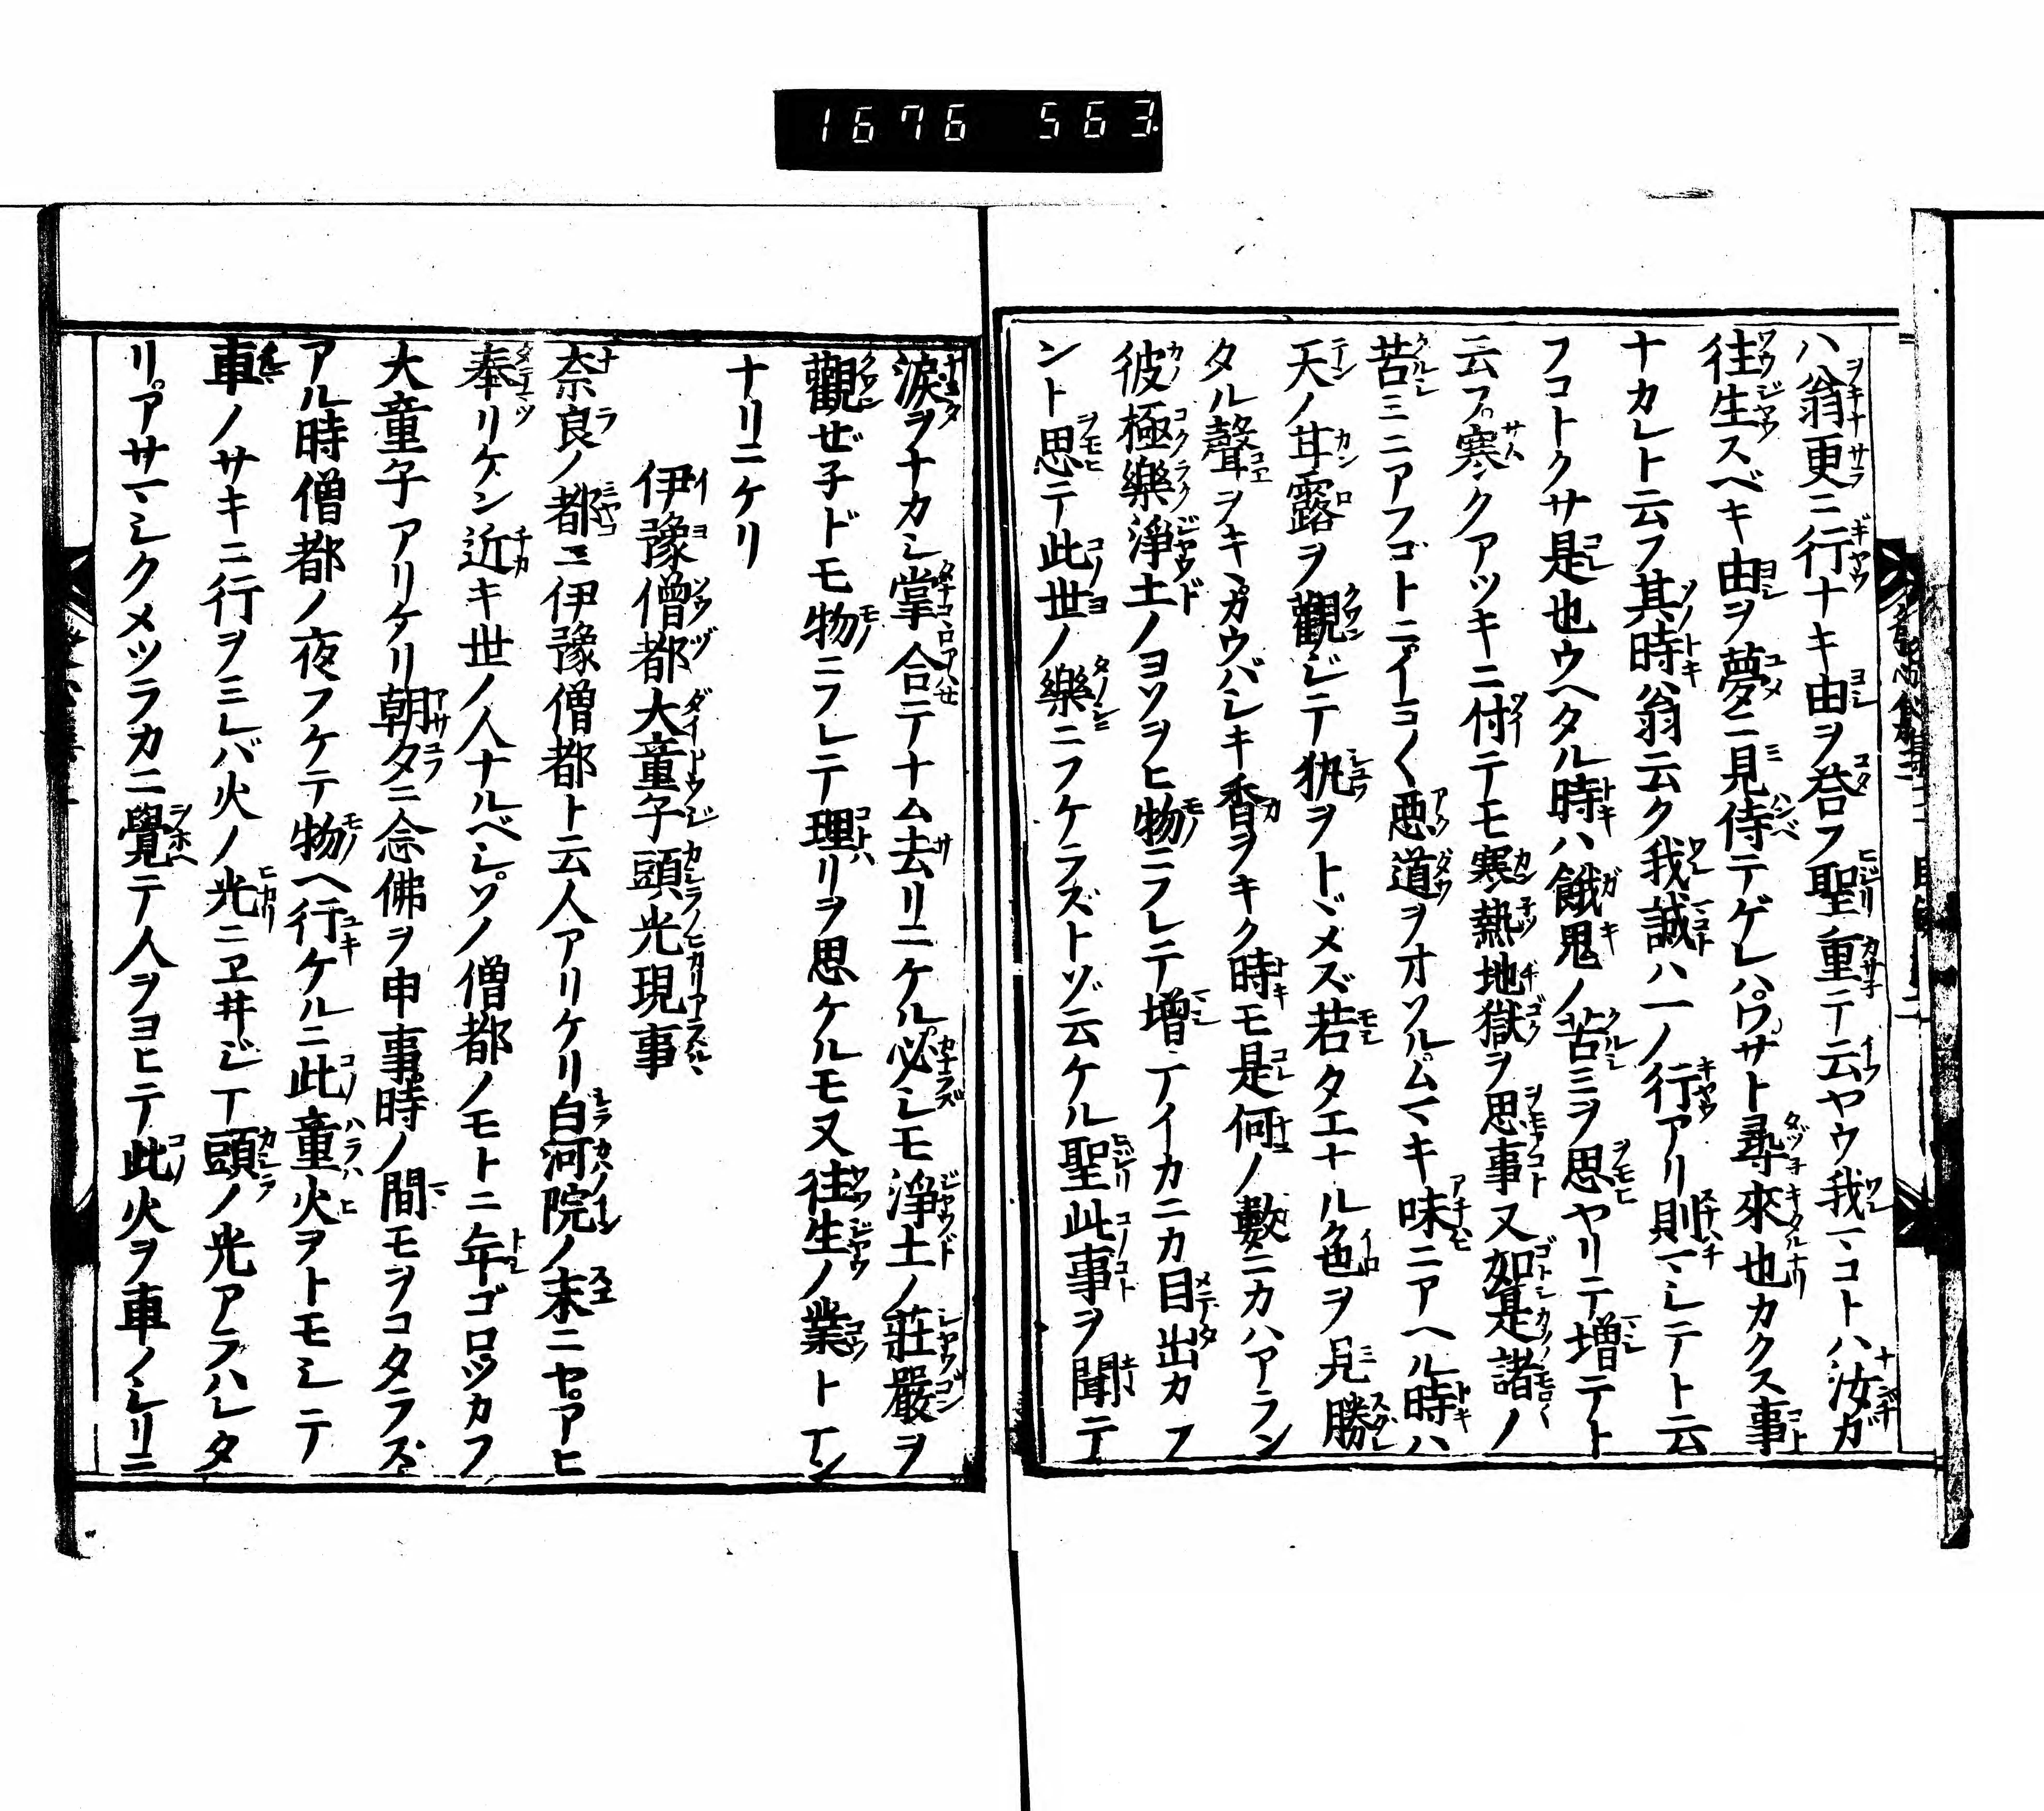 1676 563
ハ翁更ニ行ナキ由ヲ答フ聖重テ云ヤウ我マコトハ汝ガ
往生スベキ由ヲ夢ニ見侍テゲレハワサト尋來也カクス事
ナカレト云フ其時翁云ク我誠ハ一ノ行アリ則マシテト云
フコトクサ是也ウヘタル時ハ餓鬼ノ苦ミヲ思ヤリテ増テト
云フ寒クアツキニ付テモ寒熱地獄ヲ思事又如是諸ノ
苦ミニアフゴトニイヨ〱惡道ヲオソルムマキ味ニアヘル時ハ
天ノ甘露ヲ觀ジテ執ヲトヾメズ若タエナル色ヲ見勝
タル聲ヲキヽカウバシキ香ヲキク時モ是何ノ數ニカハアラン
彼極樂淨土ノヨソヲヒ物ニフレテ増テイカニカ目出カフ
ント思テ此世ノ樂ニフケラズトゾ云ケル聖此事ヲ聞テ
淚ヲナカシ掌合テナム去リニケル必シモ淨土ノ莊嚴ヲ
觀ぜ子ドモ物ニフレテ理リヲ思ケルモ又往生ノ業トナン
ナリニケリ
伊豫僧都大童子頭光現事
奈良ノ都ニ伊豫僧都ト云人アリケリ白河院ノ末ニヤアヒ
奉リケン近キ世ノ人ナルベシソノ僧都ノモトニ年ゴロツカフ
大童子アリケリ朝夕ニ念佛ヲ申事時ノ間モヲコタラズ
アル時僧都ノ夜フケテ物ヘ行ケルニ此童火ヲトモシテ
車ノサキニ行ヲミレバ火ノ光ニヱヰジテ頭ノ光アラハレタ
リアサマシクメツラカニ覺テ人ヲヨヒテ此火ヲ車ノシリニ